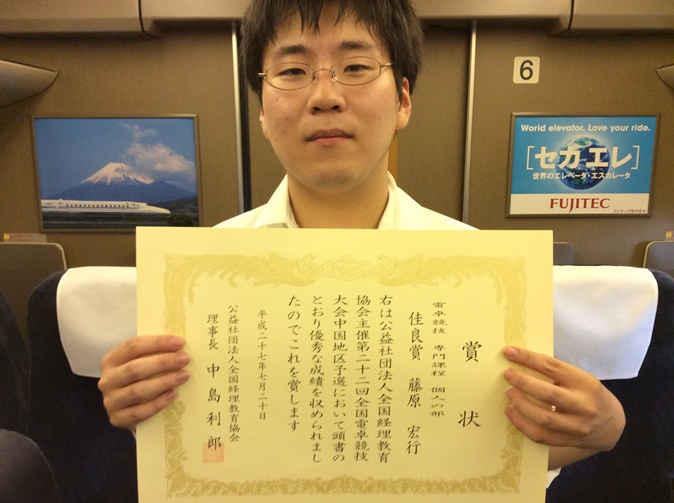 6
World elevator. Love your ride.
[セカエレ]
世界のエレベータ・エスカレータ
FUJITEC
フジテック株式会社
賞状
電卓競技 専門課程 個人の部
佳良賞 藤原 宏行
右は公益社団法人全国経理教育
協会主催第二十二回全国電卓競技
大会中国地区予選において頭書の
とおり優秀な成績を収められまし
たのでこれを賞します
平成二十七年七月二十日
公益社団法人全国経理教育協会
理事長 中島利郎